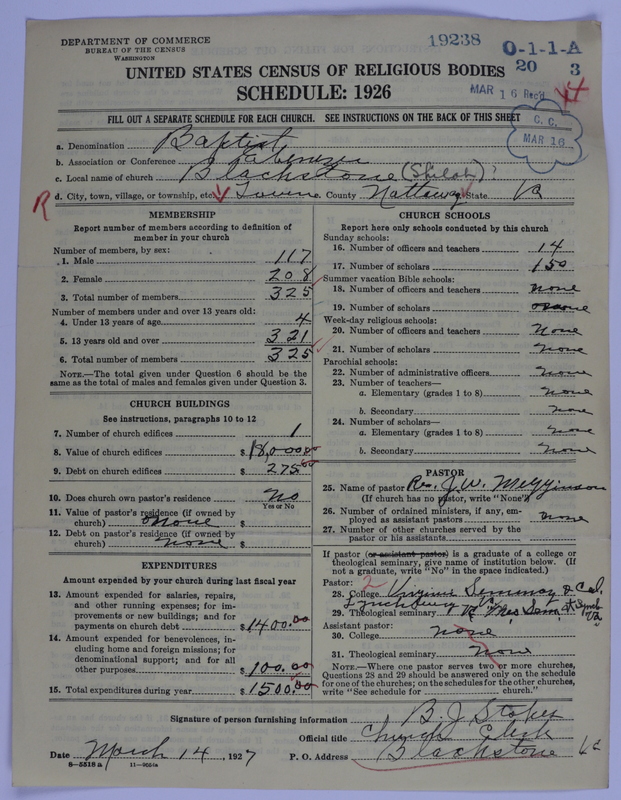 DEPARTMENT OF COMMERCE
BUREAU OF THE CENSUS
WASHINGTON
19238
O-1-1-A
20 3
UNITED STATES CENSUS OF RELIGIOUS BODIES
SCHEDULE: 1926
MAR 16 Rec'd
FILL OUT A SEPARATE SCHEDULE FOR EACH CHURCH. SEE INSTRUCTIONS ON THE BACK OF THIS SHEET
C. C.
MAR 16
a. Denomination Baptist
b. Association or Conference Ebenezer
c. Local name of church Blackstone (Shiloh) ?
R d. City, town, village, or township, etc. Town County Nottoway State Va
MEMBERSHIP
Report number of members according to definition of
member in your church
Number of members, by sex:
1. Male 117
2. Female 208
3. Total number of members 325
Number of members under and over 13 years old:
4. Under 13 years of age 4
5. 13 years old and over 321
6. Total number of members 325
NOTE.—The total given under Question 6 should be
same as the total of males and females given under Question 3.
CHURCH BUILDINGS
See instructions, paragraphs 10 to 12
7. Number of church edifices 1
8. Value of church edifices $18,000.00
9. Debt on church edifices $275.00
10. Does church own pastor's residence No
Yes or No
11. Value of pastor's residence (if owned by
church) none $
12. Debt on pastor's residence (if owned by
church) none $
EXPENDITURES
Amount expended by your church during last fiscal year
13. Amount expended for salaries, repairs,
and other running expenses; for im-
provements or new buildings; and for
payments on church debt $1400.00
14. Amount expended for benevolences, in-
cluding home and foreign missions; for
denominational support; and for all
other purposes $100.00
15. Total expenditures during year $1500.00
CHURCH SCHOOLS
Report here only schools conducted by this church
Sunday schools:
16. Number of officers and teachers 14
17. Number of scholars 150
Summer vacation Bible schools:
18. Number of officers and teachers none
19. Number of scholars none
Week-day religious schools:
20. Number of officers and teachers None
21. Number of scholars none
Parochial schools:
22. Number of administrative officers none
23. Number of teachers—
a. Elementary (grades 1 to 8) none
b. Secondary none
24. Number of scholars—
a. Elementary (grades 1 to 8) none
b. Secondary none
PASTOR
25. Name of pastor Rev. J. W. Megginson
(If church has no pastor, write "None")
26. Number of ordained ministers, if any, em-
ployed as assistant pastors none
27. Number of other churches served by the
pastor or his assistants
If pastor (or assistant pastor) is a graduate of a college or
theological seminary, give name of institution below. (If
not a graduate, write "No" in the space indicated.)
Pastor: 2
28. College Virginia Seminary & Col.
Lynchburg
29. Theological seminary Va. Sem. Lynch
Va
Assistant pastor:
30. College none
31. Theological seminary none
NOTE.—Where one pastor serves two or more churches,
Questions 28 and 29 should be answered only on the schedule
for one of the churches; on the schedules for the other churches,
write "See schedule for church."
Signature of person furnishing information B. J. Stokes
Official title Church Clerk
Date March 14, 1927 P. O. Address Blackstone Va
8—5518 a 11—9054a